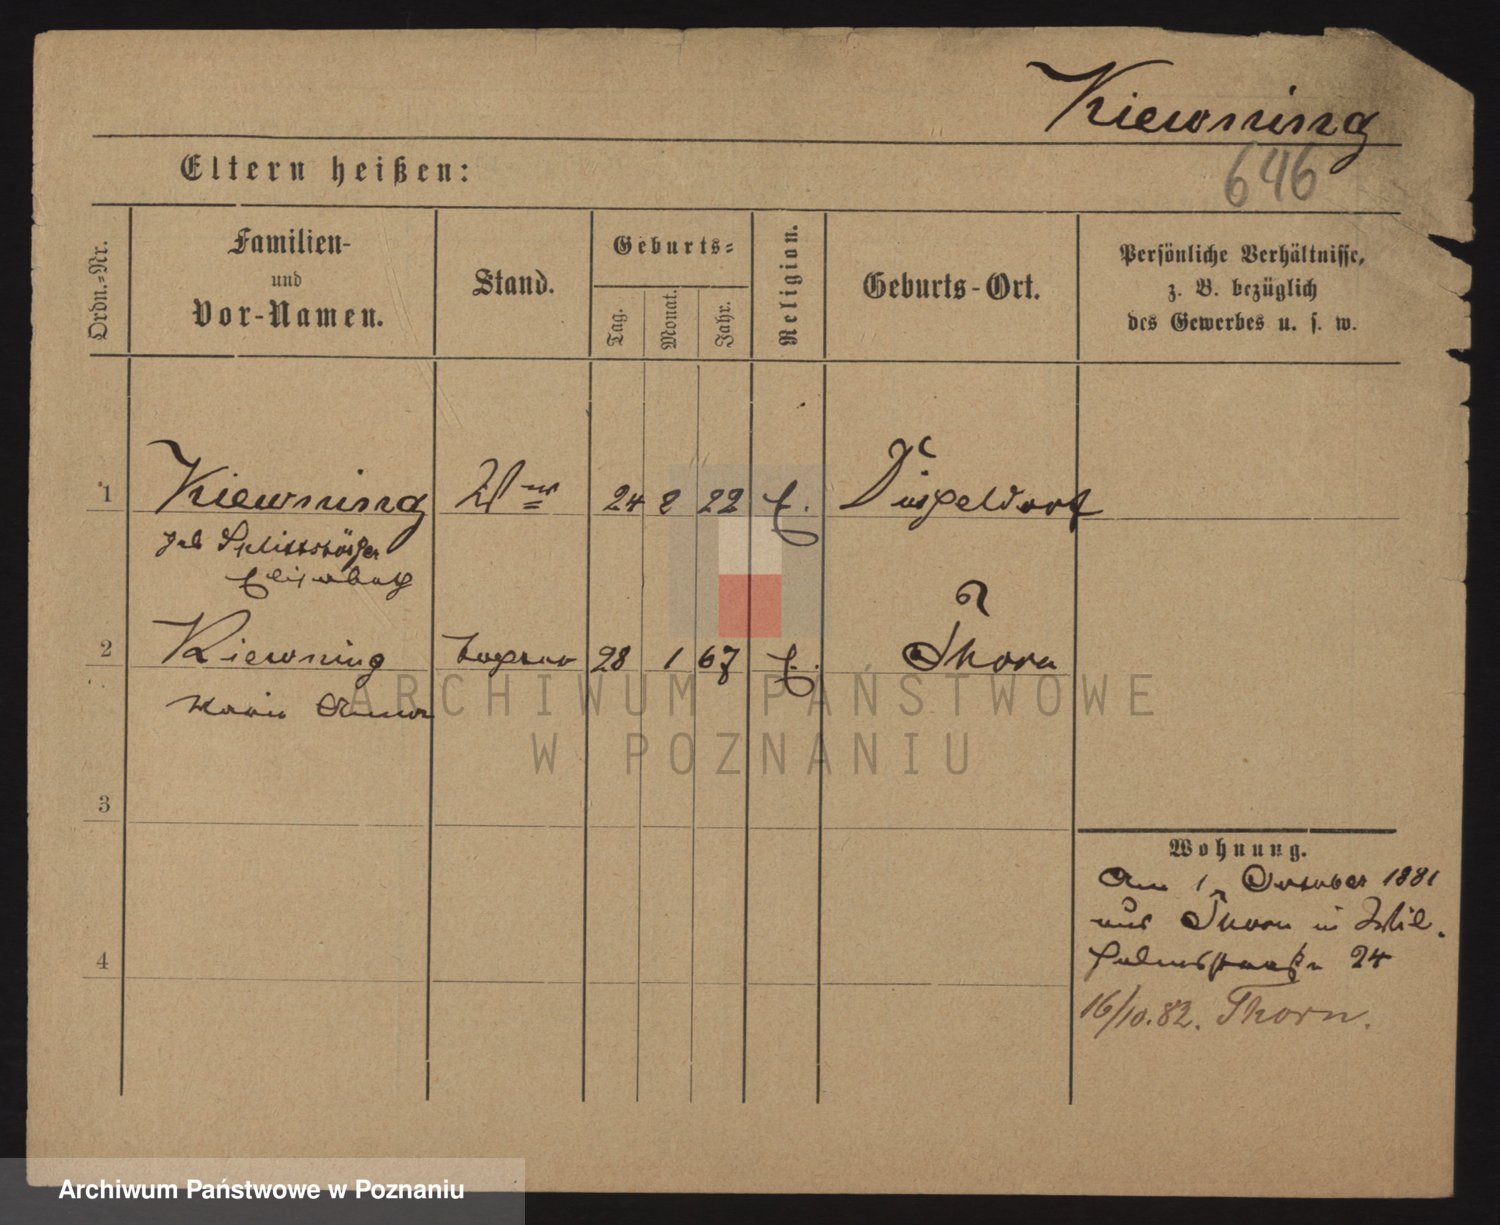 Kiewning
646
Eltern heißen:
Ordn.-Nr.
Familien-
und
Vor-Namen.
Stand.
Geburts-
Tag.
Monat.
Jahr.
Religion.
Geburts-Ort.
Persönliche Verhältnisse,
z. B. bezüglich
des Gewerbes u. s. w.
1 Kiewning Wwe 24 2 22 E. Düsseldorf
geb
Elisabeth
2 Kiewning Tochter 28 1 67 E. Thorn
Marie
ARCHIWUM PAŃSTWOWE
W POZNANIU
3
4
Wohnung.
Am 1. October 1881
aus Thorn in Wil-
helmstraße 24
16/10.82. Thorn.
Archiwum Państwowe w Poznaniu